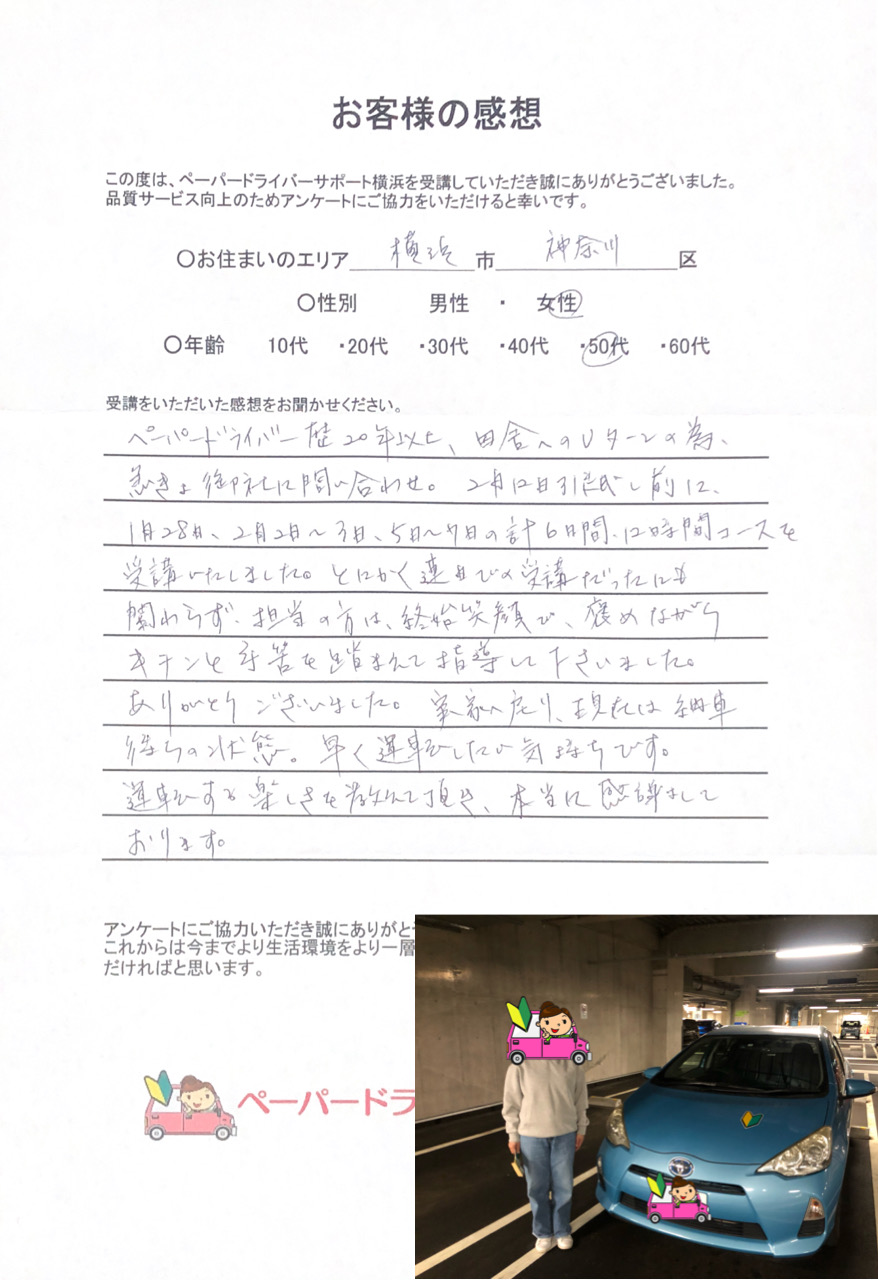 お客様の感想
この度は、ペーパードライバーサポート横浜を受講していただき誠にありがとうございました。
品質サービス向上のためアンケートにご協力をいただけると幸いです。
〇お住まいのエリア 横浜 市 神奈川 区
〇性別 男性 ・ 女性
〇年齢 10代 ・20代 ・30代 ・40代 ・50代 ・60代
受講をいただいた感想をお聞かせください。
ペーパードライバー歴20年以上、田舎へのUターンの為、
急きょ御社に問い合わせ。2月12日引越し前に、
1月28日、2月2日～3日、5日～7日の計6日間、12時間コースを
受講いたしました。とにかく連日での受講だったにも
関わらず、担当の方は、終始笑顔で、褒めながら
キチンと予習を踏まえて指導して下さいました。
ありがとうございました。実家へ戻り、現在は納車
待ちの状態。早く運転したい気持ちです。
運転する楽しさを教えて頂き、本当に感謝して
おります。
アンケートにご協力いただき誠にありがと
これからは今までより生活環境をより一層
だければと思います。
ペーパードラ